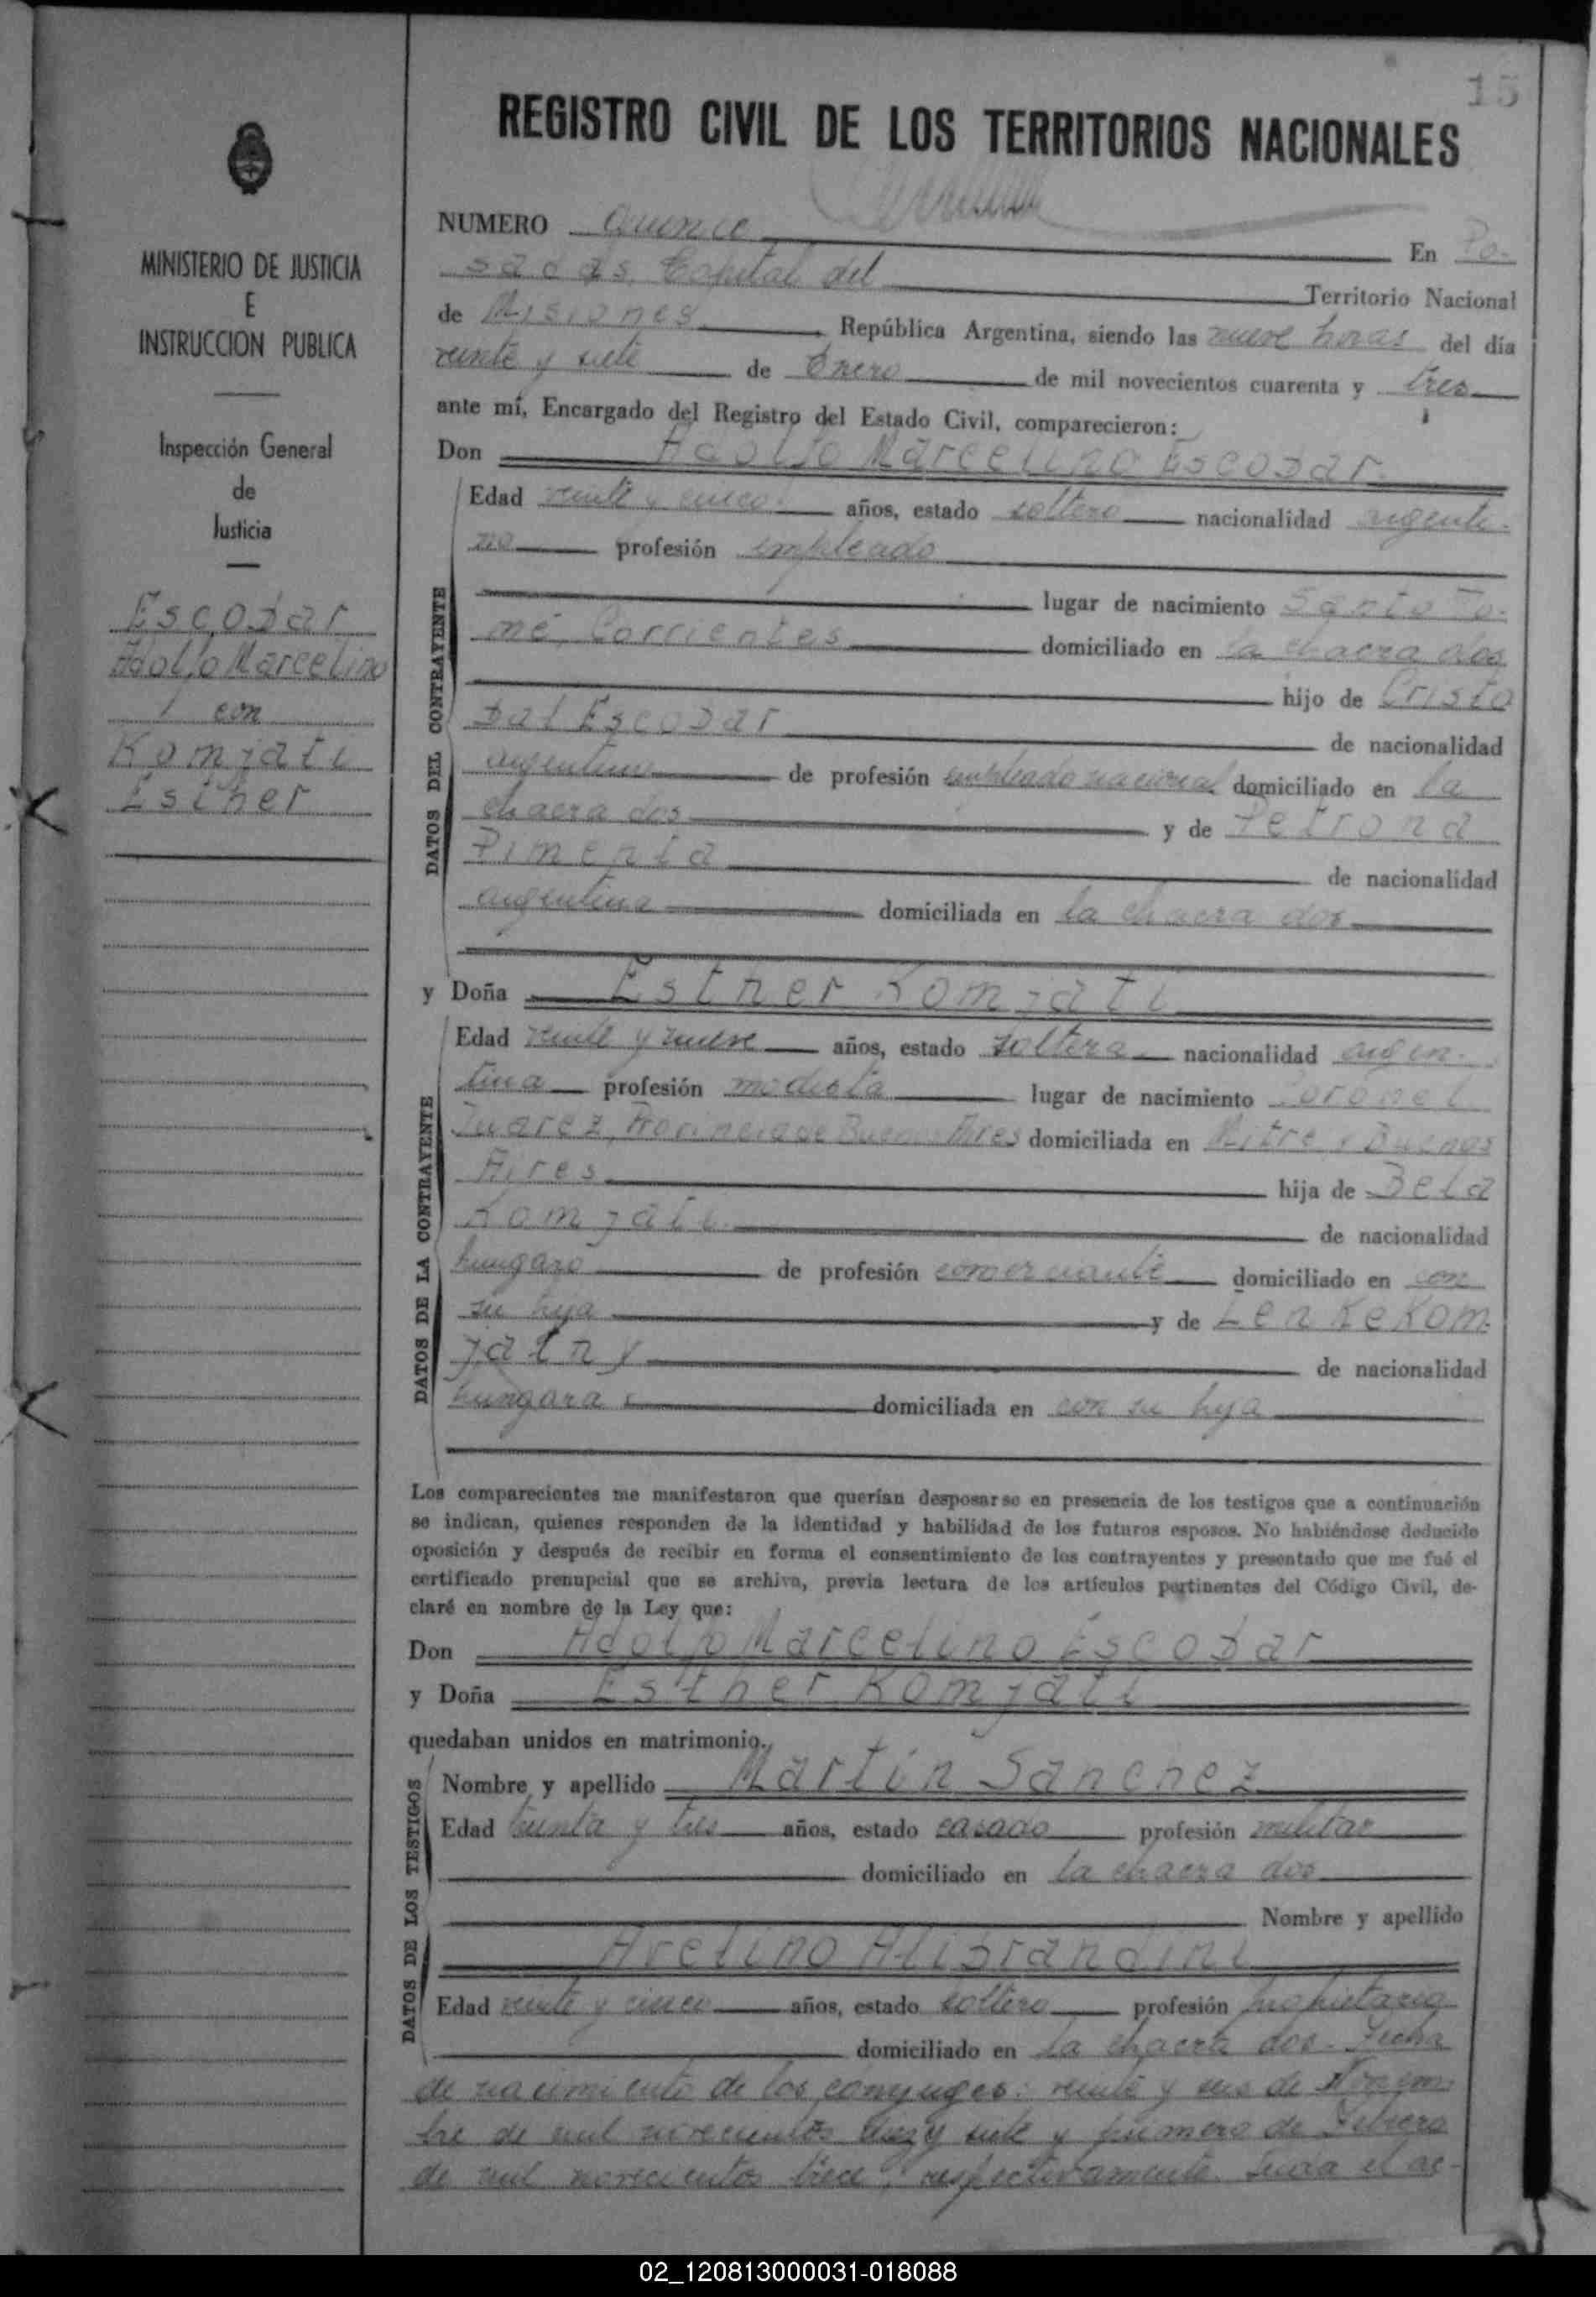 15
REGISTRO CIVIL DE LOS TERRITORIOS NACIONALES
MINISTERIO DE JUSTICIA
E
INSTRUCCION PUBLICA
Inspección General
de
Justicia
Escobar
Adolfo Marcelino
con
Komjati
Esther
NUMERO Quince En Po-
sadas, Capital del Territorio Nacional
de Misiones República Argentina, siendo las nueve horas del día
veinte y siete de Enero de mil novecientos cuarenta y tres
ante mí, Encargado del Registro del Estado Civil, comparecieron:
Don Adolfo Marcelino Escobar
DATOS DEL CONTRAYENTE
Edad veinte y cinco años, estado soltero nacionalidad argenti-
no profesión empleado
lugar de nacimiento Santo To-
mé, Corrientes domiciliado en la chacra dos
hijo de Cristo
bal Escobar de nacionalidad
argentino de profesión empleado nacional domiciliado en la
chacra dos y de Petrona
Pimenta de nacionalidad
argentina domiciliada en la chacra dos
y Doña Esther Komjati
DATOS DE LA CONTRAYENTE
Edad veinte y nueve años, estado soltera nacionalidad argen-
tina profesión modista lugar de nacimiento Coronel
Juarez, Provincia de Buenos Aires domiciliada en Mitre y Buenos
Aires hija de Bela
Komjati de nacionalidad
hungaro de profesión comerciante domiciliado en con
su hija y de Lenke Kom-
jathy de nacionalidad
hungara domiciliada en con su hija
Los comparecientes me manifestaron que querían desposarse en presencia de los testigos que a continuación
se indican, quienes responden de la identidad y habilidad de los futuros esposos. No habiéndose deducido
oposición y después de recibir en forma el consentimiento de los contrayentes y presentado que me fué el
certificado prenupcial que se archiva, previa lectura de los artículos pertinentes del Código Civil, de-
claré en nombre de la Ley que:
Don Adolfo Marcelino Escobar
y Doña Esther Komjati
quedaban unidos en matrimonio.
DATOS DE LOS TESTIGOS
Nombre y apellido Martín Sanchez
Edad treinta y tres años, estado casado profesión militar
domiciliado en la chacra dos
Nombre y apellido
Avelino Alibrandini
Edad veinte y cinco años, estado soltero profesión propietario
domiciliado en la chacra dos. Fecha
de nacimiento de los conyuges: veinte y seis de Noviem-
bre de mil novecientos diez y siete y primero de Febrero
de mil novecientos trece, respectivamente. Leida el ac-
02_120813000031-018088